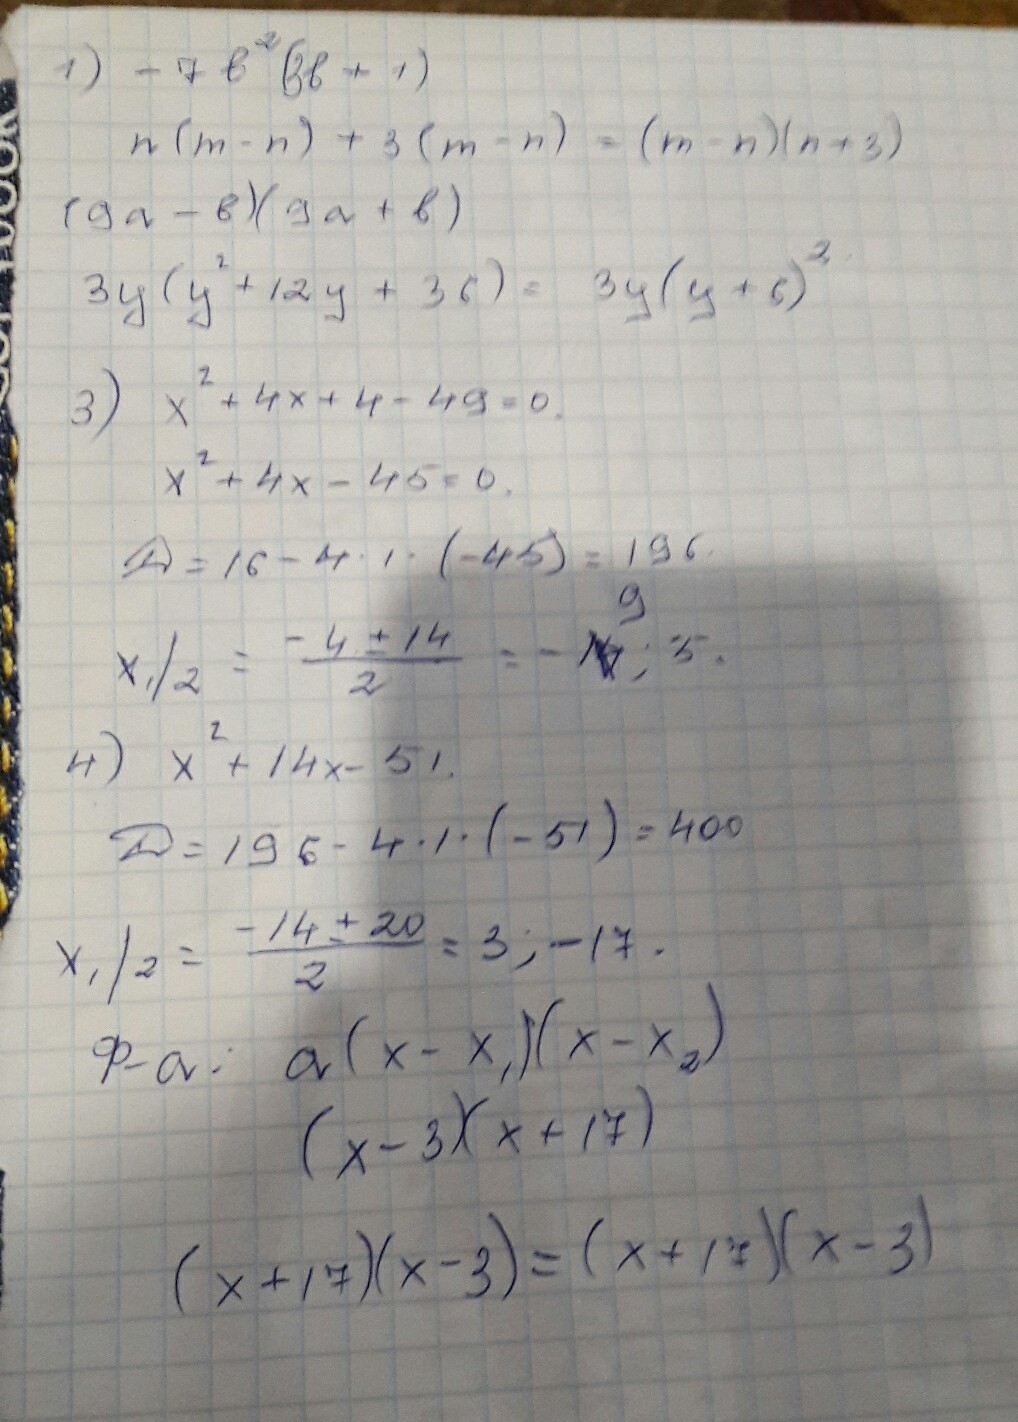 1) - 7 в²(3в + 1)
n(m - n) + 3(m - n) = (m - n)(n + 3)
(9a - в)(9a + в)
3y(y² + 12y + 36) = 3y(y + 6)²
3) x² + 4x + 4 - 49 = 0.
x² + 4x - 45 = 0.
D = 16 - 4 · 1 · (-45) = 196.
x₁/₂ = (-4 ± 14)/2 = -9; 5.
4) x² + 14x - 51.
D = 196 - 4 · 1 · (-51) = 400
x₁/₂ = (-14 ± 20)/2 = 3; -17.
Ф-а: a(x - x₁)(x - x₂)
(x - 3)(x + 17)
(x + 17)(x - 3) = (x + 17)(x - 3)